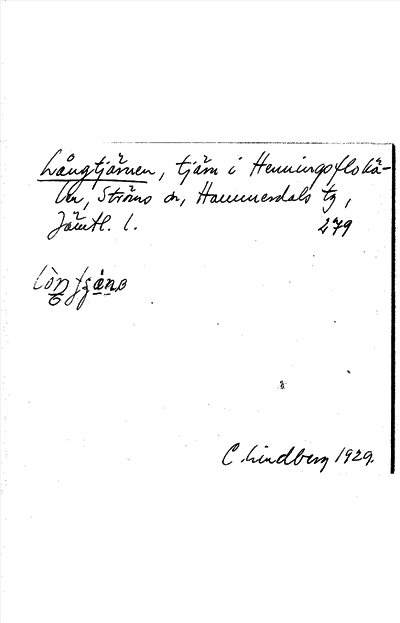 Långtjärnen, tjärn i Henningsflokä-
len, Ströms sn, Hammerdals tg,
Jämtl. l. 279
C. Lindberg 1929.